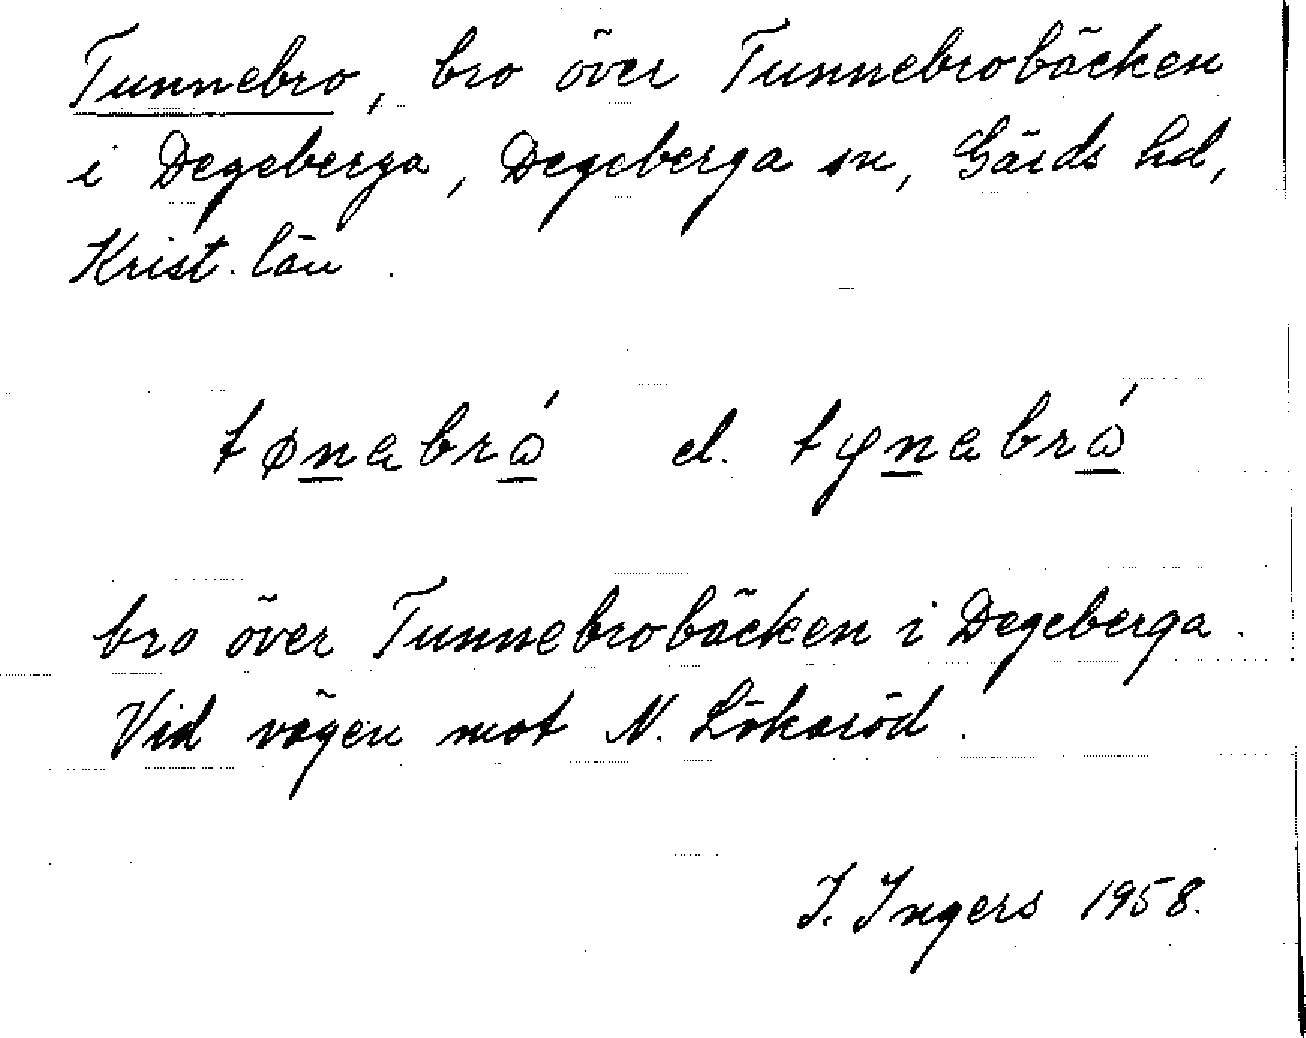 Tunnebro, bro över Tunnebrobäcken
i Degeberga, Degeberga sn, Gärds hd,
Krist. län.
tønabrǻ el. tყnabrǻ
bro över Tunnebrobäcken i Degeberga.
Vid vägen mot N. Lökaröd.
I. Ingers 1958.